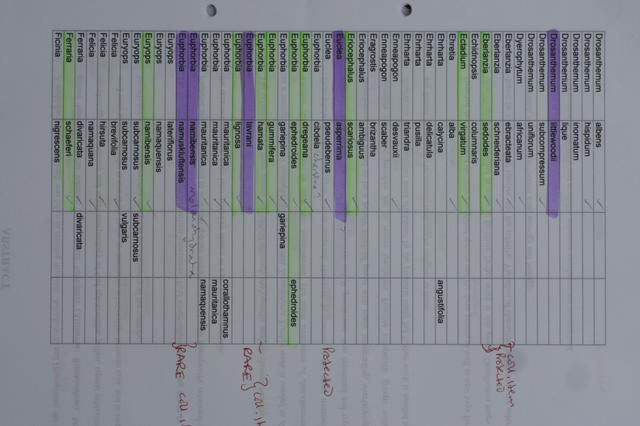 Drosanthemum albens
Drosanthemum hispidum
Drosanthemum inornatum
Drosanthemum lique
Drosanthemum littlewoodii
Drosanthemum subcompressum
Drosanthemum uniflorum
Dyerophytum africanum
Eberlanzia ebracteata } coll. item
Eberlanzia schneideriana Protected
Eberlanzia sedoides
Echidnopsis columnaris
Ectadium virgatum
Ehretia alba
Ehrharta calycina angustifolia
Ehrharta delicatula
Ehrharta pusilla
Ehrharta triandra
Enneapogon desvauxii
Enneapogon scaber
Eragrostis brizantha
Eriocephalus ambiguus
Eriocephalus scariosus
Euclea asperrima ?
Euclea pseudebenus Protected
Euphorbia cibdela
Euphorbia dregeana
Euphorbia ephedroides ephedroides
Euphorbia gariepina gariepina
Euphorbia gummifera
Euphorbia hamata
Euphorbia lavrani RARE
Euphorbia lignosa
Euphorbia mauritanica corallothamnus
Euphorbia mauritanica mauritanica
Euphorbia mauritanica namaquensis
Euphorbia namibensis
Euphorbia namuskluftensis RARE coll.
Euryops lateriflorus
Euryops namaquensis
Euryops namibensis
Euryops subcarnosus subcarnosus
Euryops subcarnosus vulgaris
Felicia brevifolia
Felicia hirsuta
Felicia namaquana
Ferraria divaricata divaricata
Ferraria schaeferi
Ficinia nigrescens